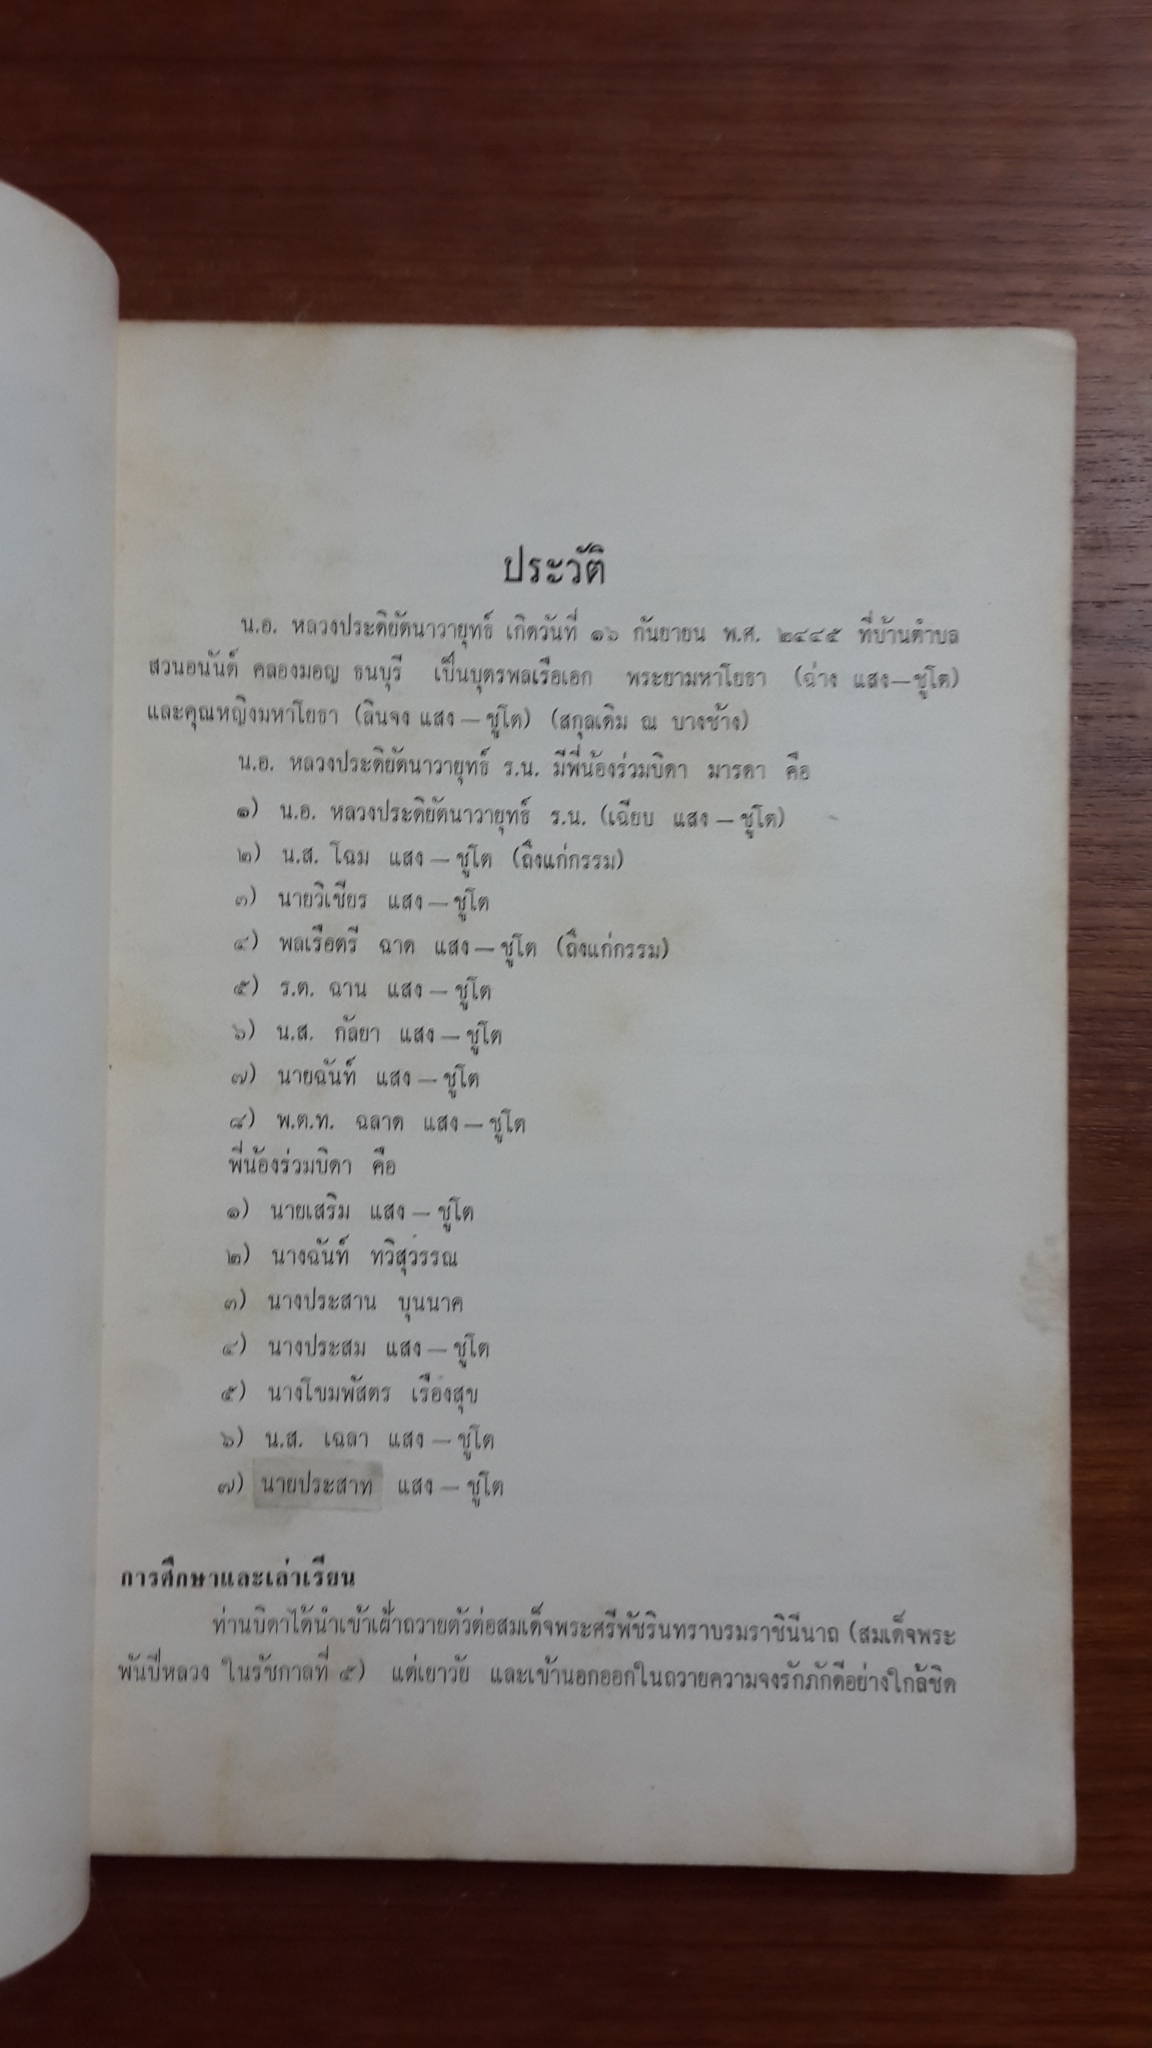 ประวัติ
น.อ. หลวงประดิยัตนาวายุทธ์ เกิดวันที่ ๑๖ กันยายน พ.ศ. ๒๔๔๕ ที่บ้านตำบล
สวนอนันต์ คลองมอญ ธนบุรี เป็นบุตรพลเรือเอก พระยามหาโยธา (ฉ่าง แสง—ชูโต)
และคุณหญิงมหาโยธา (ลินจง แสง—ชูโต) (สกุลเดิม ณ บางช้าง)
น.อ. หลวงประดิยัตนาวายุทธ์ ร.น. มีพี่น้องร่วมบิดา มารดา คือ
๑) น.อ. หลวงประดิยัตนาวายุทธ์ ร.น. (เฉียบ แสง—ชูโต)
๒) น.ส. โฉม แสง—ชูโต (ถึงแก่กรรม)
๓) นายวิเชียร แสง—ชูโต
๔) พลเรือตรี ฉาด แสง—ชูโต (ถึงแก่กรรม)
๕) ร.ต. ฉาน แสง—ชูโต
๖) น.ส. กัลยา แสง—ชูโต
๗) นายฉันท์ แสง—ชูโต
๘) พ.ต.ท. ฉลาด แสง—ชูโต
พี่น้องร่วมบิดา คือ
๑) นายเสริม แสง—ชูโต
๒) นางฉันท์ ทวิสุวรรณ
๓) นางประสาน บุนนาค
๔) นางประสม แสง—ชูโต
๕) นางโขมพัสตร เรืองสุข
๖) น.ส. เฉลา แสง—ชูโต
๗) นายประสาท แสง—ชูโต
การศึกษาและเล่าเรียน
ท่านบิดาได้นำเข้าเฝ้าถวายตัวต่อสมเด็จพระศรีพัชรินทราบรมราชินีนาถ (สมเด็จพระ
พันปีหลวง ในรัชกาลที่ ๕) แต่เยาวัย และเข้านอกออกในถวายความจงรักภักดีอย่างใกล้ชิด